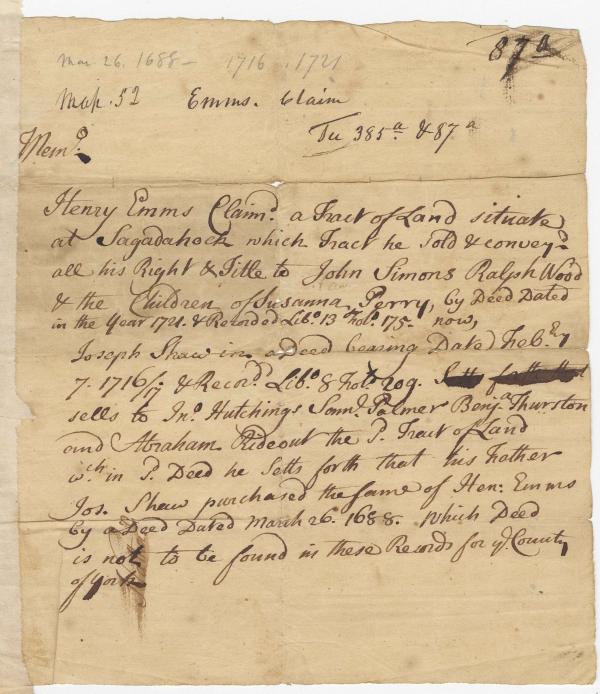 87a
Mar 26. 1688 - 1716 . 1721
Map. 52 Emms. Claim
Tu 385a & 87a
Memo.
Henry Emms Claimd. a Tract of Land situate
at Sagadahock which Tract he Sold & conveyd.
all his Right & Title to John Simons Ralph Wood
& the Children of Susanna Perry, by Deed Dated
in the Year 1721. & Recorded Libo. 13 Folo. 175. now,
Joseph Shaw in a deed bearing Dated Feb.ry
7. 1716/17 & Recor.d Libo. 8 Folo. 209.
sells to Jno. Hutchings Saml. Palmer Benja. Thurston
and Abraham Rideout the P. Tract of Land
wch. in P. Deed he Setts forth that his Father
Jos. Shaw purchased the same of Hen: Emms
by a Deed Dated March 26. 1688. which Deed
is not to be found in these Records for ye. County
of York